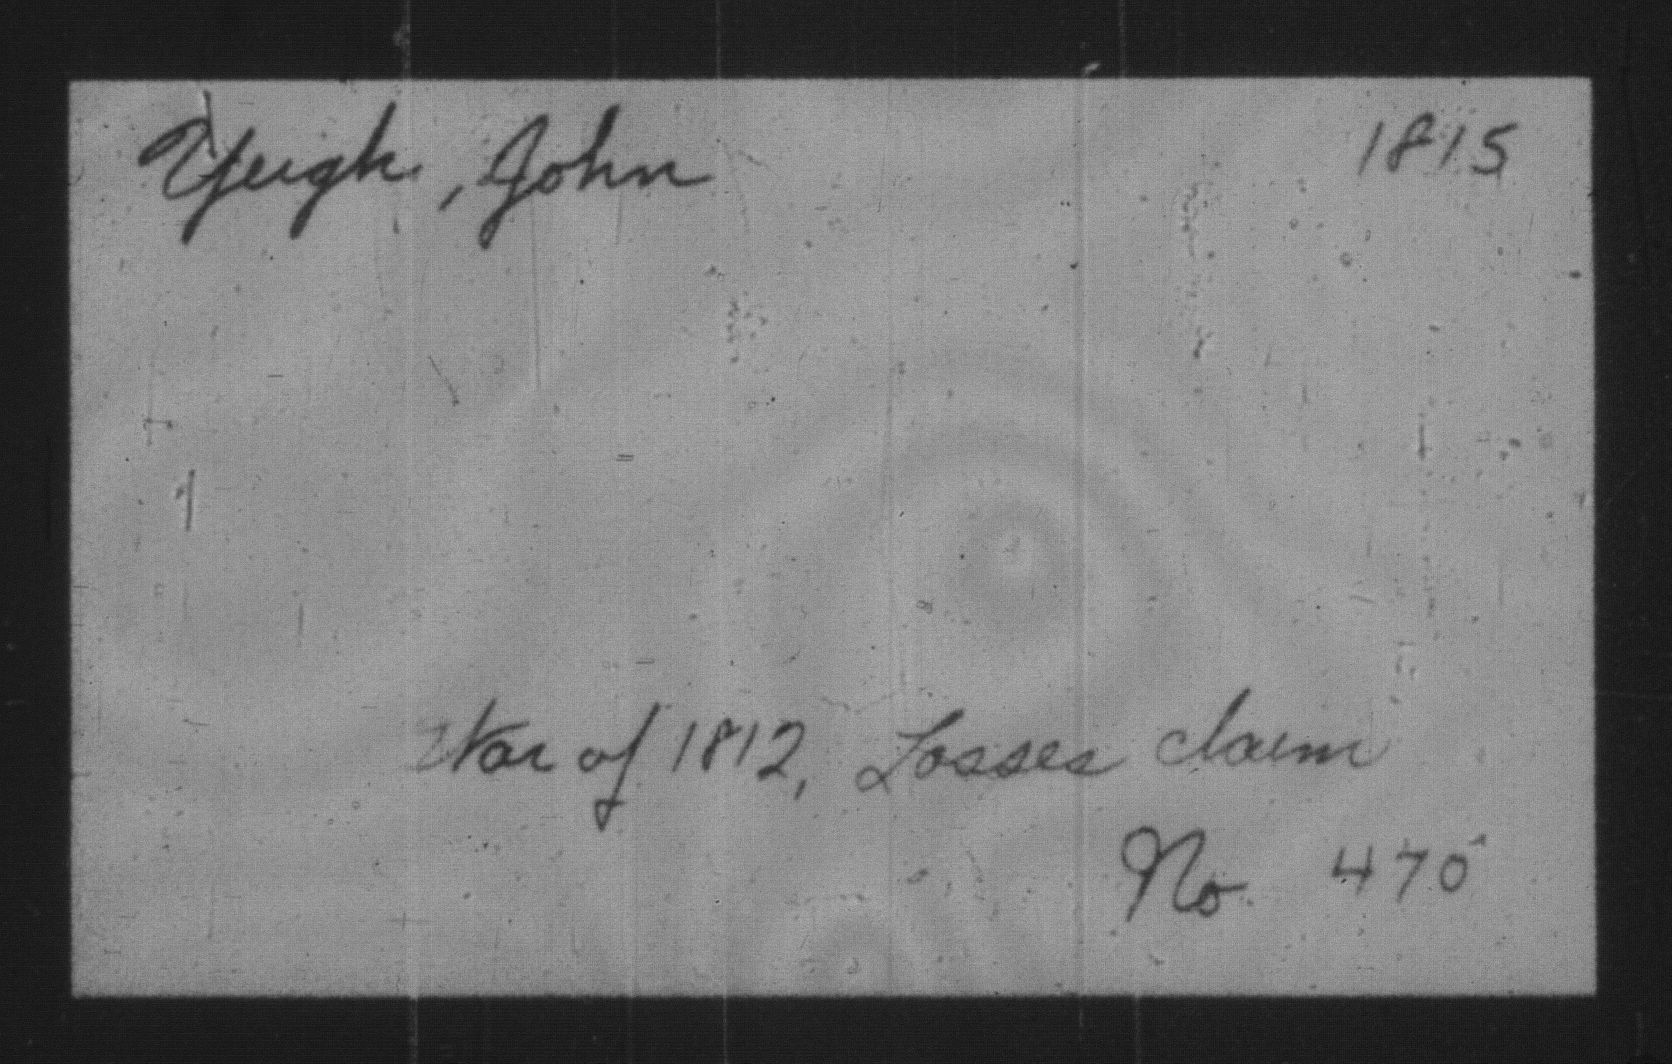 Yeigh, John 1815
War of 1812, Losses claim
No. 470